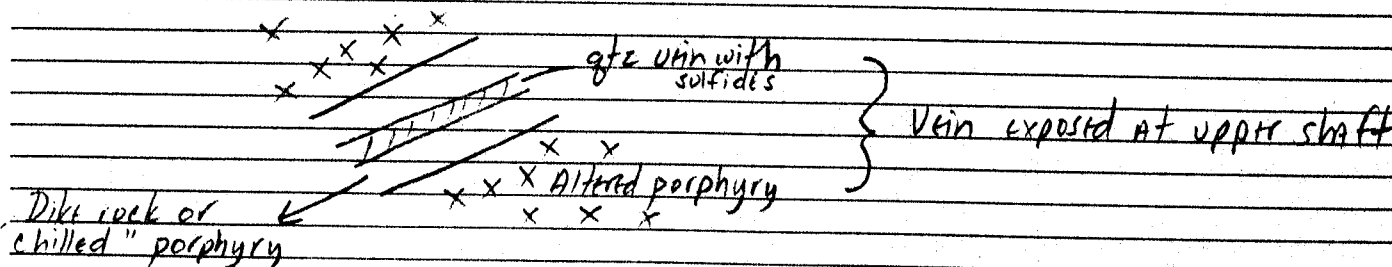 qtz vein with
sulfides
Vein exposed at upper shaft
Altered porphyry
Dike rock or
"chilled" porphyry